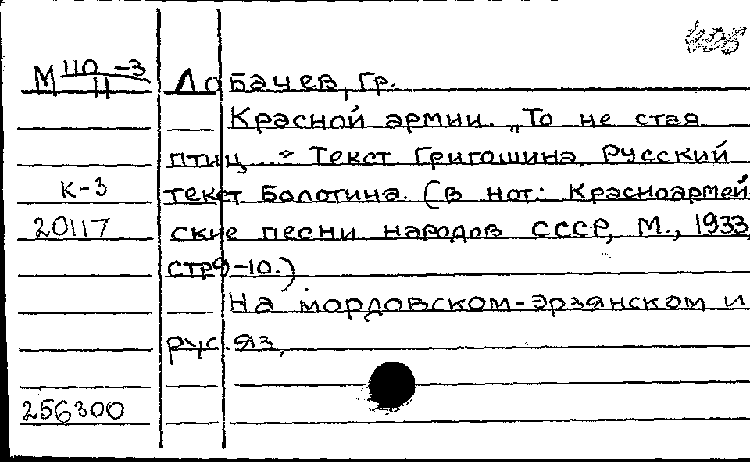 М 110-3
11
Лобачев, Гр.
Красной армии. „То не стая
птиц..." Текст Григошина. Русский
К-3
текст Болотина. (В нот: Красноармей
20117
ские песни народов СССР, М., 1933,
стр9-10.)
На мордовском-эрзянском и
рус.яз,
256300